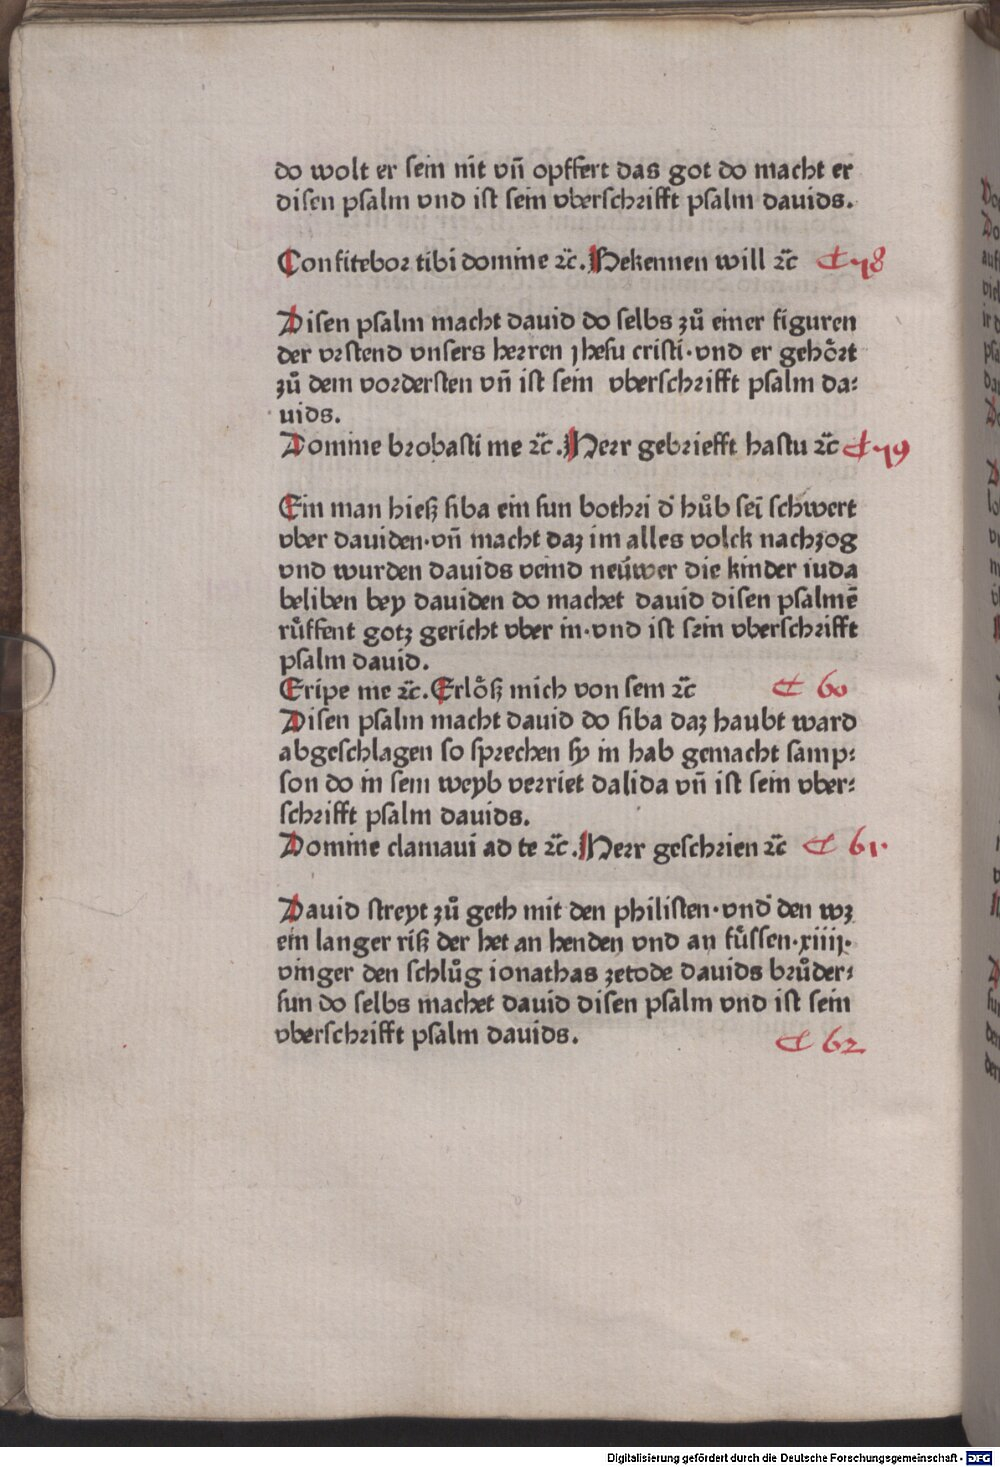 do wolt er sein nit vn̄ opffert das got do macht er
disen psalm vnd ist sein vberschrifft psalm dauids.
Confitebor tibi domine ⁊c̄. Hekennen will ⁊c̄ ¶ 58
Disen psalm macht dauid do selbs zuͦ einer figuren
der vrstend vnsers herren jhesu cristi·vnd er gehoͤrt
zuͦ dem vordersten vn̄ ist sein vberschrifft psalm da:
uids.
Domine brobasti me ⁊c̄. Herr gebriefft hastu ⁊c̄ ¶ 59
Ein man hieß siba ein sun bothri d' huͦb sei͞ schwert
vber dauiden·vn̄ macht daz im alles volck nachzog
vnd wurden dauids veind neuͤwer die kinder iuda
beliben bey dauiden do machet dauid disen psalmē
ruͤffent gotz gericht vber in·vnd ist sein vberschrifft
psalm dauid.
Eripe me ⁊c̄. Erloͤß mich von sem ⁊c̄ ¶ 60
Disen psalm macht dauid do siba daz haubt ward
abgeschlagen so sprechen sy in hab gemacht samp:
son do in sem weyb verriet dalida vn̄ ist sein vber:
schrifft psalm dauids.
Domine clamaui ad te ⁊c̄. Herr geschrien ⁊c̄ ¶ 61·
Dauid streyt zuͦ geth mit den philisten·vnd' den wz
ein langer riß der het an henden vnd an fuͤssen·xiiij·
vinger den schluͦg ionathas zetode dauids bruͦder:
sun do selbs machet dauid disen psalm vnd ist sein
vberschrifft psalm dauids.
¶ 62
Digitalisierung gefördert durch die Deutsche Forschungsgemeinschaft - DFG